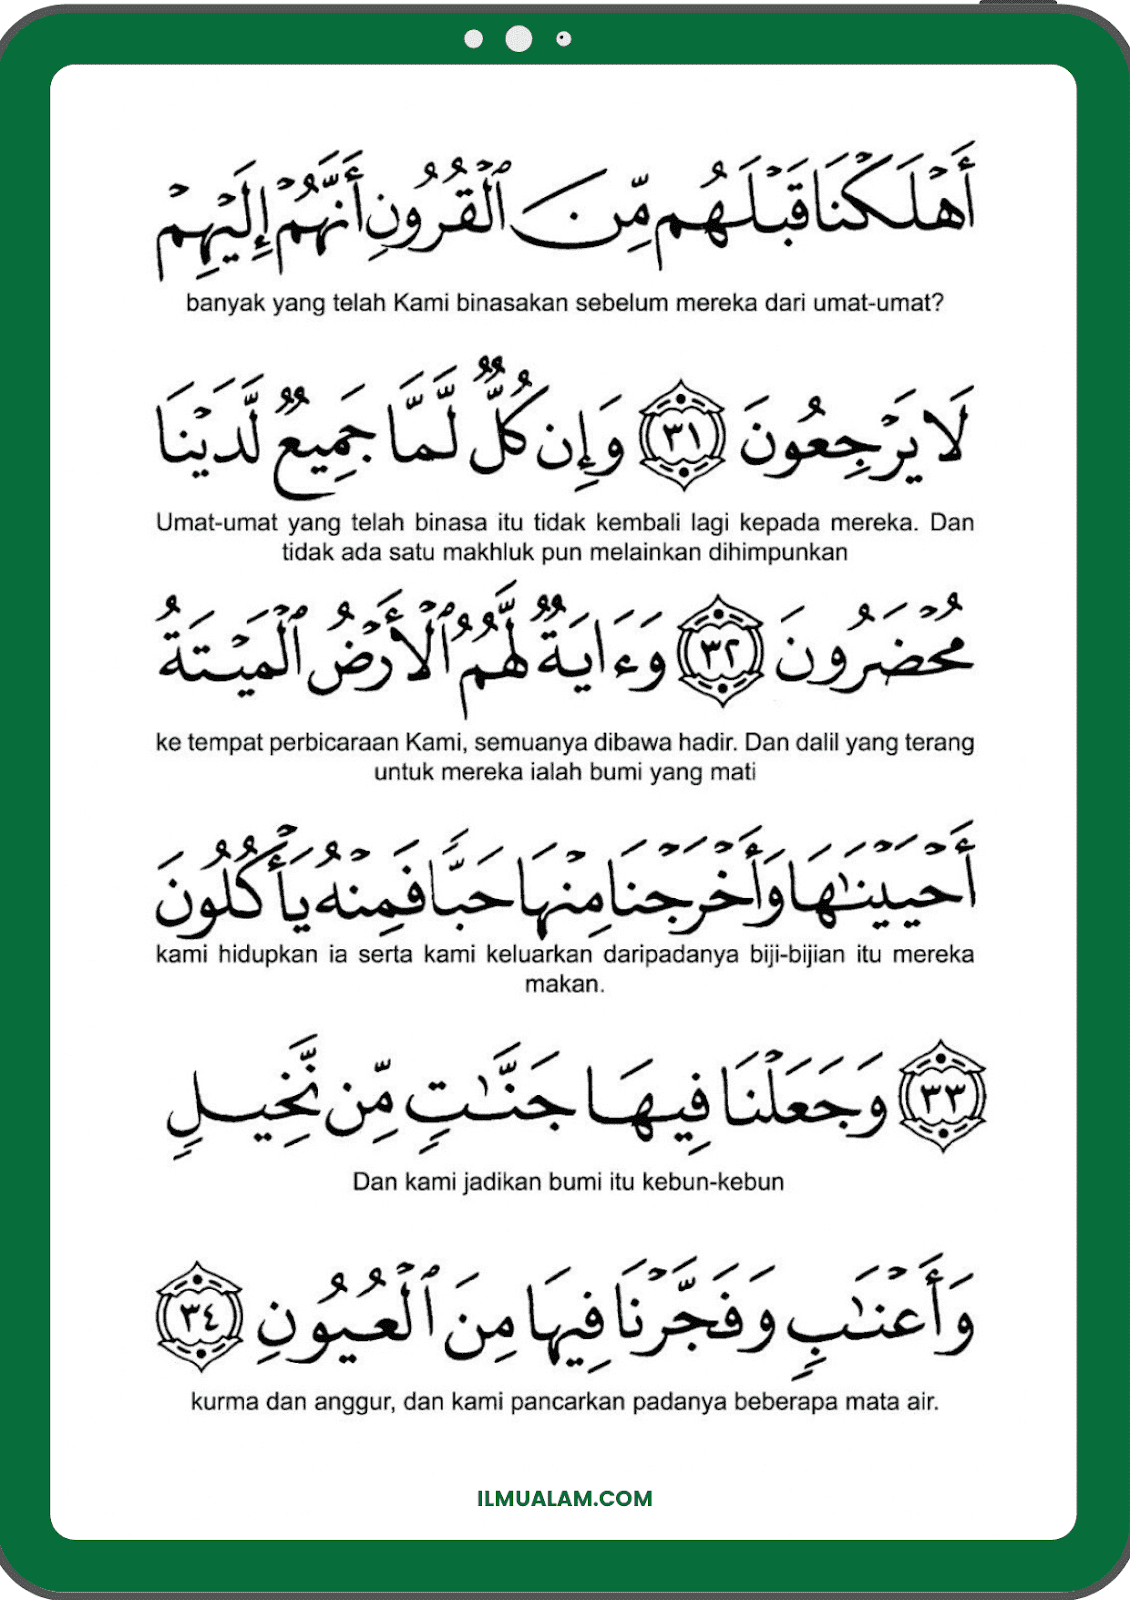 أَهْلَكْنَا قَبْلَهُم مِّنَ ٱلْقُرُونِ أَنَّهُمْ إِلَيْهِمْ
banyak yang telah Kami binasakan sebelum mereka dari umat-umat?
لَا يَرْجِعُونَ ٣١ وَإِن كُلٌّ لَّمَّا جَمِيعٌ لَّدَيْنَا
Umat-umat yang telah binasa itu tidak kembali lagi kepada mereka. Dan
tidak ada satu makhluk pun melainkan dihimpunkan
مُحْضَرُونَ ٣٢ وَءَايَةٌ لَّهُمُ ٱلْأَرْضُ ٱلْمَيْتَةُ
ke tempat perbicaraan Kami, semuanya dibawa hadir. Dan dalil yang terang
untuk mereka ialah bumi yang mati
أَحْيَيْنَٰهَا وَأَخْرَجْنَا مِنْهَا حَبًّا فَمِنْهُ يَأْكُلُونَ
kami hidupkan ia serta kami keluarkan daripadanya biji-bijian itu mereka
makan.
٣٣ وَجَعَلْنَا فِيهَا جَنَّٰتٍ مِّن نَّخِيلٍ
Dan kami jadikan bumi itu kebun-kebun
وَأَعْنَٰبٍ وَفَجَّرْنَا فِيهَا مِنَ ٱلْعُيُونِ ٣٤
kurma dan anggur, dan kami pancarkan padanya beberapa mata air.
ILMUALAM.COM